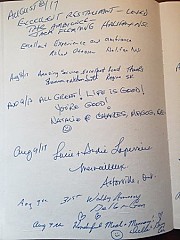 AUGUST 8/17
EXCELLENT RESTAURANT - LOVED
THE AMBIANCE -
JACK FLEMING HALIFAX NS
Excellent Experience and ambiance
Halifax NS
Aug 9/17 Amazing Service Excellent Food Thanks
Regina SK
AUG 9/17 ALL GREAT! LIFE IS GOOD!
YOU'RE GOOD!
NATALIE & CHARLES,
Aug 9/17 Lucie & André Laperrière
Merveilleux
Ont.
Aug 9th 31st Wedding Anniversary
Aug 9th Wonderful Meal & Memory!